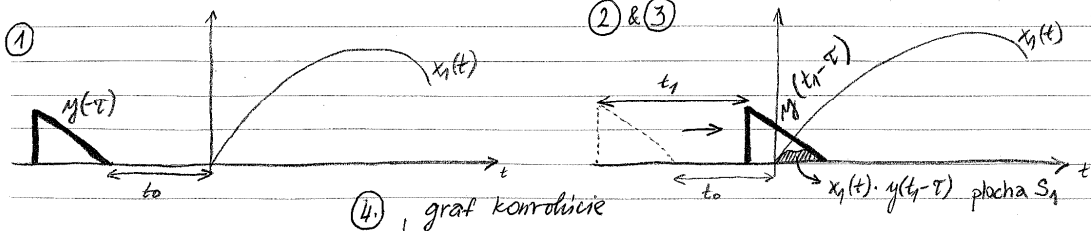 ①
y(-τ)
x₁(t)
t₀
t
② & ③
t₁
y(t₁-τ)
x₁(t)
t₀
t
x₁(t) · y(t₁-τ) plocha S₁
④. , graf konvolúcie